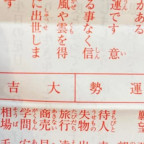 がある
運です 意
る事なく信
風や雲を得
に出世しま
す
運勢
大吉
願望
待人
失物
旅行
商売
学問
相場